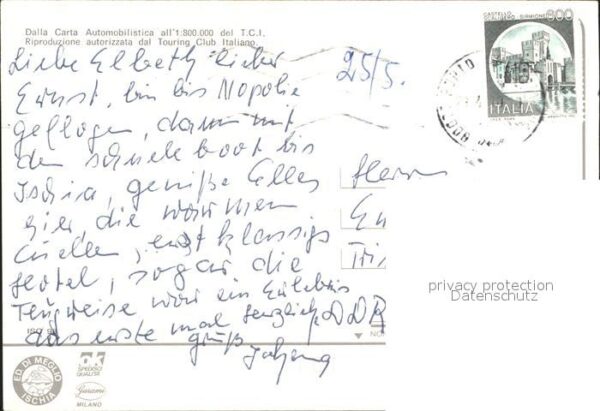 Dalla Carta Automobilistica all'1:800.000 del T.C.I.
Riproduzione autorizzata dal Touring Club Italiano.
Liebe Elbeth, lieber
Ernst, bin bis Nopolie
geflogen, dann mit
dem schnellboot bis
Ischia, genieße Alles
hier, die warmen
Quellen, erstklassigs
Hotel, sogar die
war ein Erlebnis
das erste mal herzlich
grüß
25/5.
Herrn
DDR
800
ITALIA
privacy protection
Datenschutz
ED. DI MEGLIO
ISCHIA
MILANO